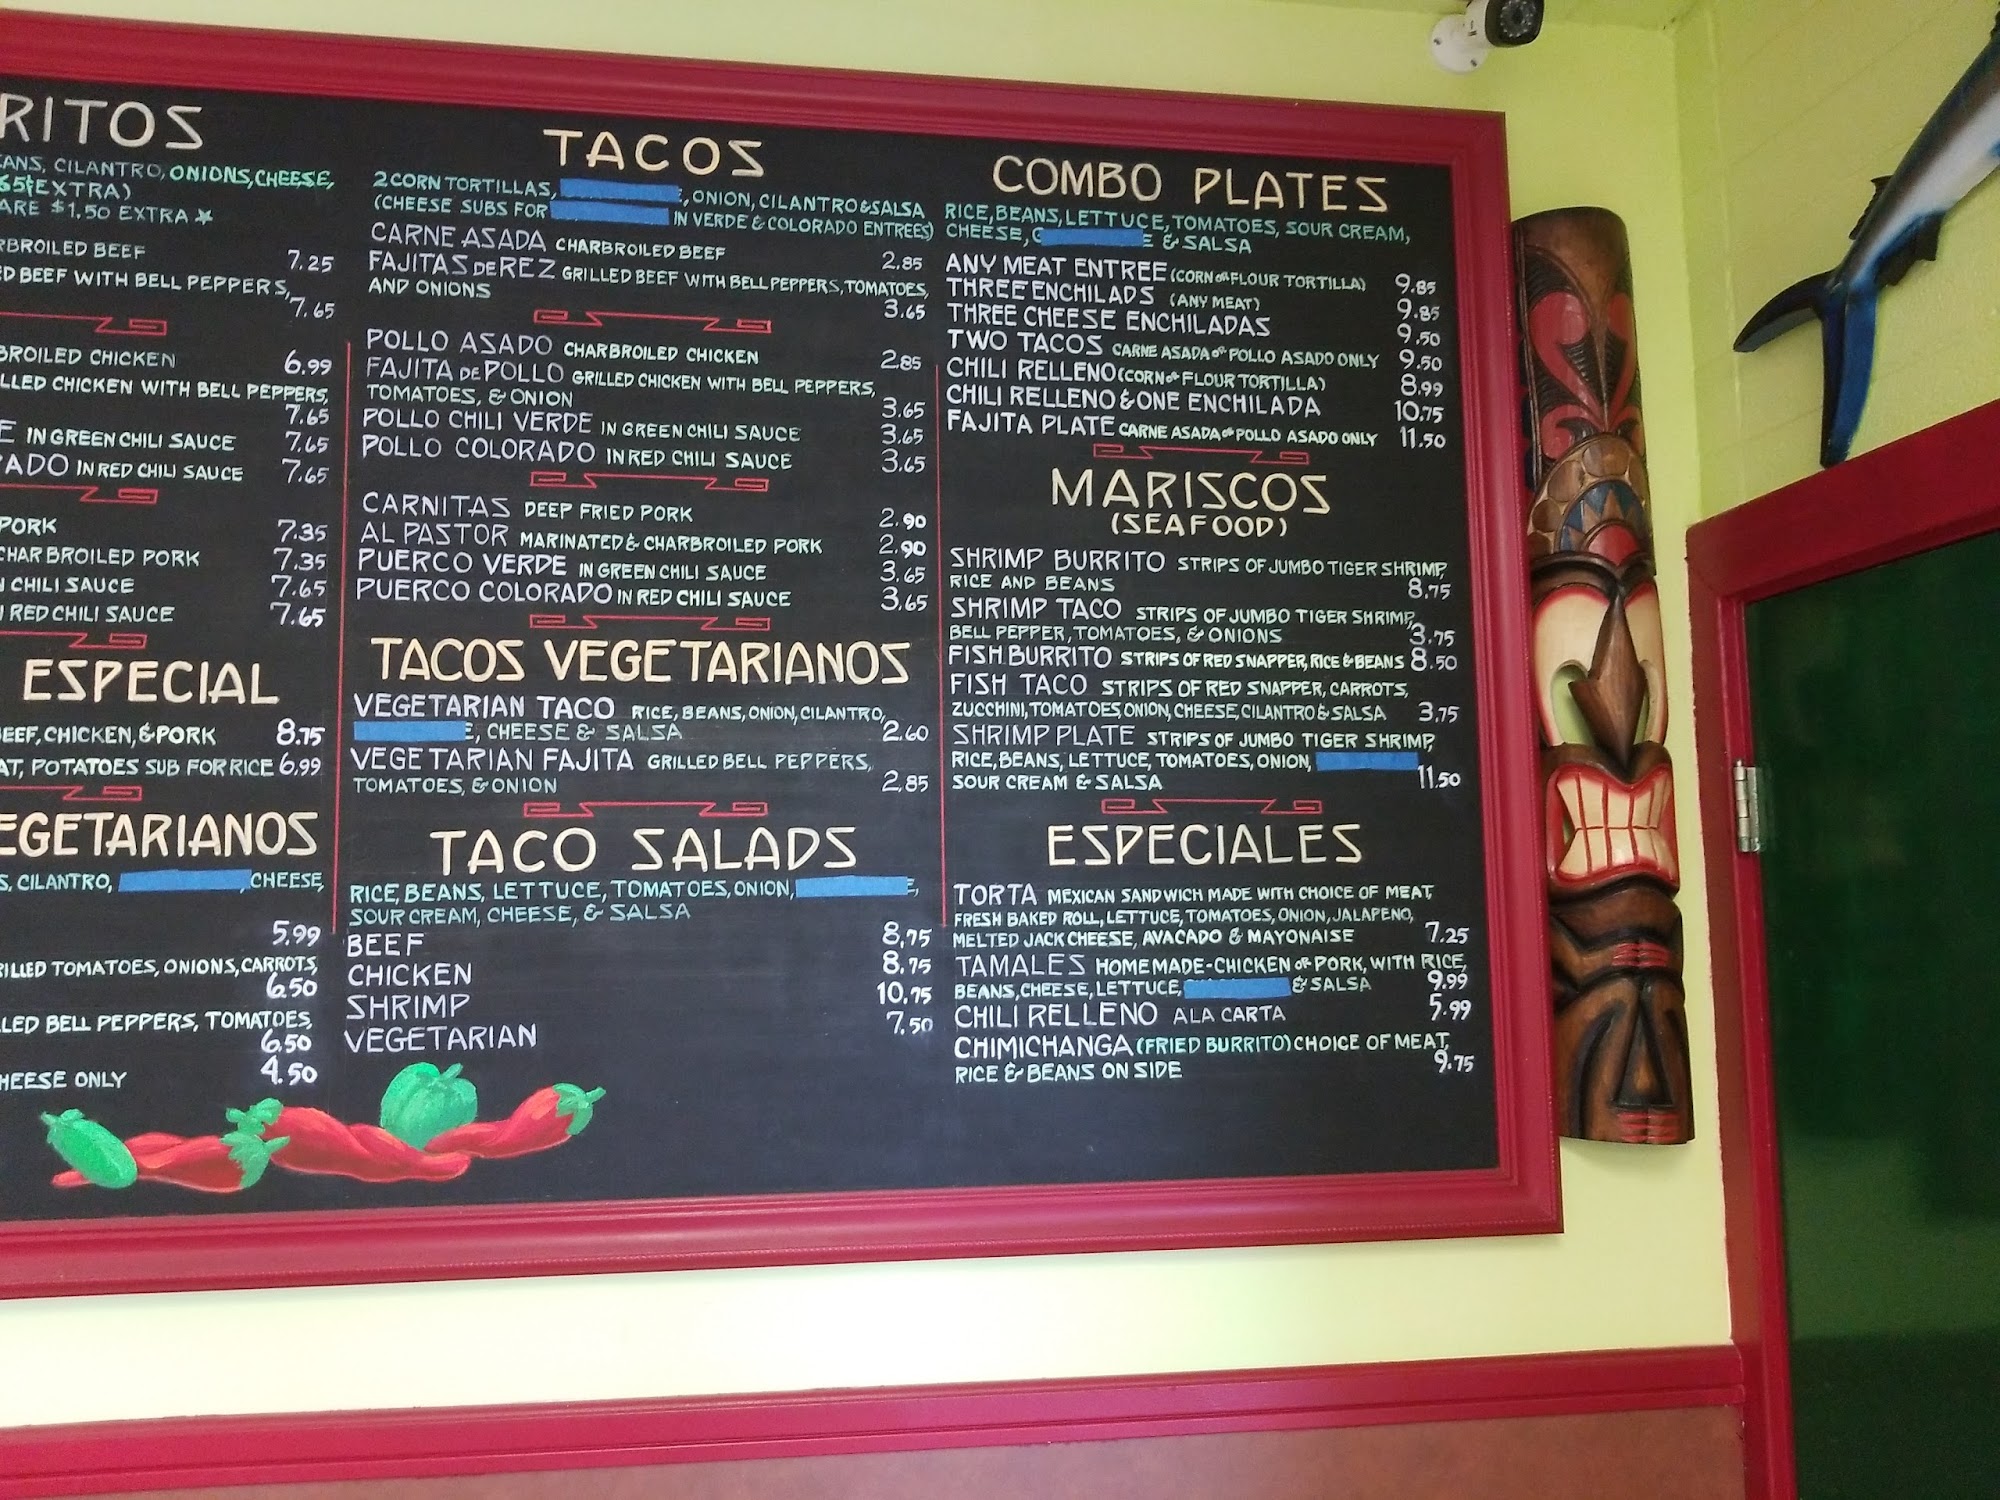 RITOS
EANS, CILANTRO, ONIONS, CHEESE,
65¢ EXTRA)
ARE $1.50 EXTRA
RBROILED BEEF 7.25
ED BEEF WITH BELL PEPPERS,
7.65
BROILED CHICKEN 6.99
LLED CHICKEN WITH BELL PEPPERS,
7.65
E IN GREEN CHILI SAUCE 7.65
ADO IN RED CHILI SAUCE 7.65
PORK 7.35
CHARBROILED PORK 7.35
N CHILI SAUCE 7.65
N RED CHILI SAUCE 7.65
ESPECIAL
BEEF, CHICKEN, & PORK 8.75
AT, POTATOES SUB FOR RICE 6.99
EGETARIANOS
S, CILANTRO, , CHEESE,
5.99
RILLED TOMATOES, ONIONS, CARROTS,
6.50
LLED BELL PEPPERS, TOMATOES,
6.50
HEESE ONLY 4.50
TACOS
2 CORN TORTILLAS, E, ONION, CILANTRO & SALSA
(CHEESE SUBS FOR IN VERDE & COLORADO ENTREES)
CARNE ASADA CHARBROILED BEEF 2.85
FAJITAS de REZ GRILLED BEEF WITH BELL PEPPERS, TOMATOES,
AND ONIONS 3.65
POLLO ASADO CHARBROILED CHICKEN 2.85
FAJITA de POLLO GRILLED CHICKEN WITH BELL PEPPERS,
TOMATOES, & ONION 3.65
POLLO CHILI VERDE IN GREEN CHILI SAUCE 3.65
POLLO COLORADO IN RED CHILI SAUCE 3.65
CARNITAS DEEP FRIED PORK 2.90
AL PASTOR MARINATED & CHARBROILED PORK 2.90
PUERCO VERDE IN GREEN CHILI SAUCE 3.65
PUERCO COLORADO IN RED CHILI SAUCE 3.65
TACOS VEGETARIANOS
VEGETARIAN TACO RICE, BEANS, ONION, CILANTRO,
E, CHEESE & SALSA 2.60
VEGETARIAN FAJITA GRILLED BELL PEPPERS,
TOMATOES, & ONION 2.85
TACO SALADS
RICE, BEANS, LETTUCE, TOMATOES, ONION, E,
SOUR CREAM, CHEESE, & SALSA
BEEF 8.75
CHICKEN 8.75
SHRIMP 10.75
VEGETARIAN 7.50
COMBO PLATES
RICE, BEANS, LETTUCE, TOMATOES, SOUR CREAM,
CHEESE, G E & SALSA
ANY MEAT ENTREE (CORN or FLOUR TORTILLA) 9.85
THREE ENCHILADS (ANY MEAT) 9.85
THREE CHEESE ENCHILADAS 9.50
TWO TACOS CARNE ASADA or POLLO ASADO ONLY 9.50
CHILI RELLENO (CORN or FLOUR TORTILLA) 8.99
CHILI RELLENO & ONE ENCHILADA 10.75
FAJITA PLATE CARNE ASADA or POLLO ASADO ONLY 11.50
MARISCOS
(SEAFOOD)
SHRIMP BURRITO STRIPS OF JUMBO TIGER SHRIMP,
RICE AND BEANS 8.75
SHRIMP TACO STRIPS OF JUMBO TIGER SHRIMP,
BELL PEPPER, TOMATOES, & ONIONS 3.75
FISH BURRITO STRIPS OF RED SNAPPER, RICE & BEANS 8.50
FISH TACO STRIPS OF RED SNAPPER, CARROTS,
ZUCCHINI, TOMATOES, ONION, CHEESE, CILANTRO & SALSA 3.75
SHRIMP PLATE STRIPS OF JUMBO TIGER SHRIMP,
RICE, BEANS, LETTUCE, TOMATOES, ONION,
SOUR CREAM & SALSA 11.50
ESPECIALES
TORTA MEXICAN SANDWICH MADE WITH CHOICE OF MEAT,
FRESH BAKED ROLL, LETTUCE, TOMATOES, ONION, JALAPENO,
MELTED JACK CHEESE, AVACADO & MAYONAISE 7.25
TAMALES HOMEMADE-CHICKEN or PORK, WITH RICE,
BEANS, CHEESE, LETTUCE, & SALSA 9.99
CHILI RELLENO ALA CARTA 5.99
CHIMICHANGA (FRIED BURRITO) CHOICE OF MEAT,
RICE & BEANS ON SIDE 9.75